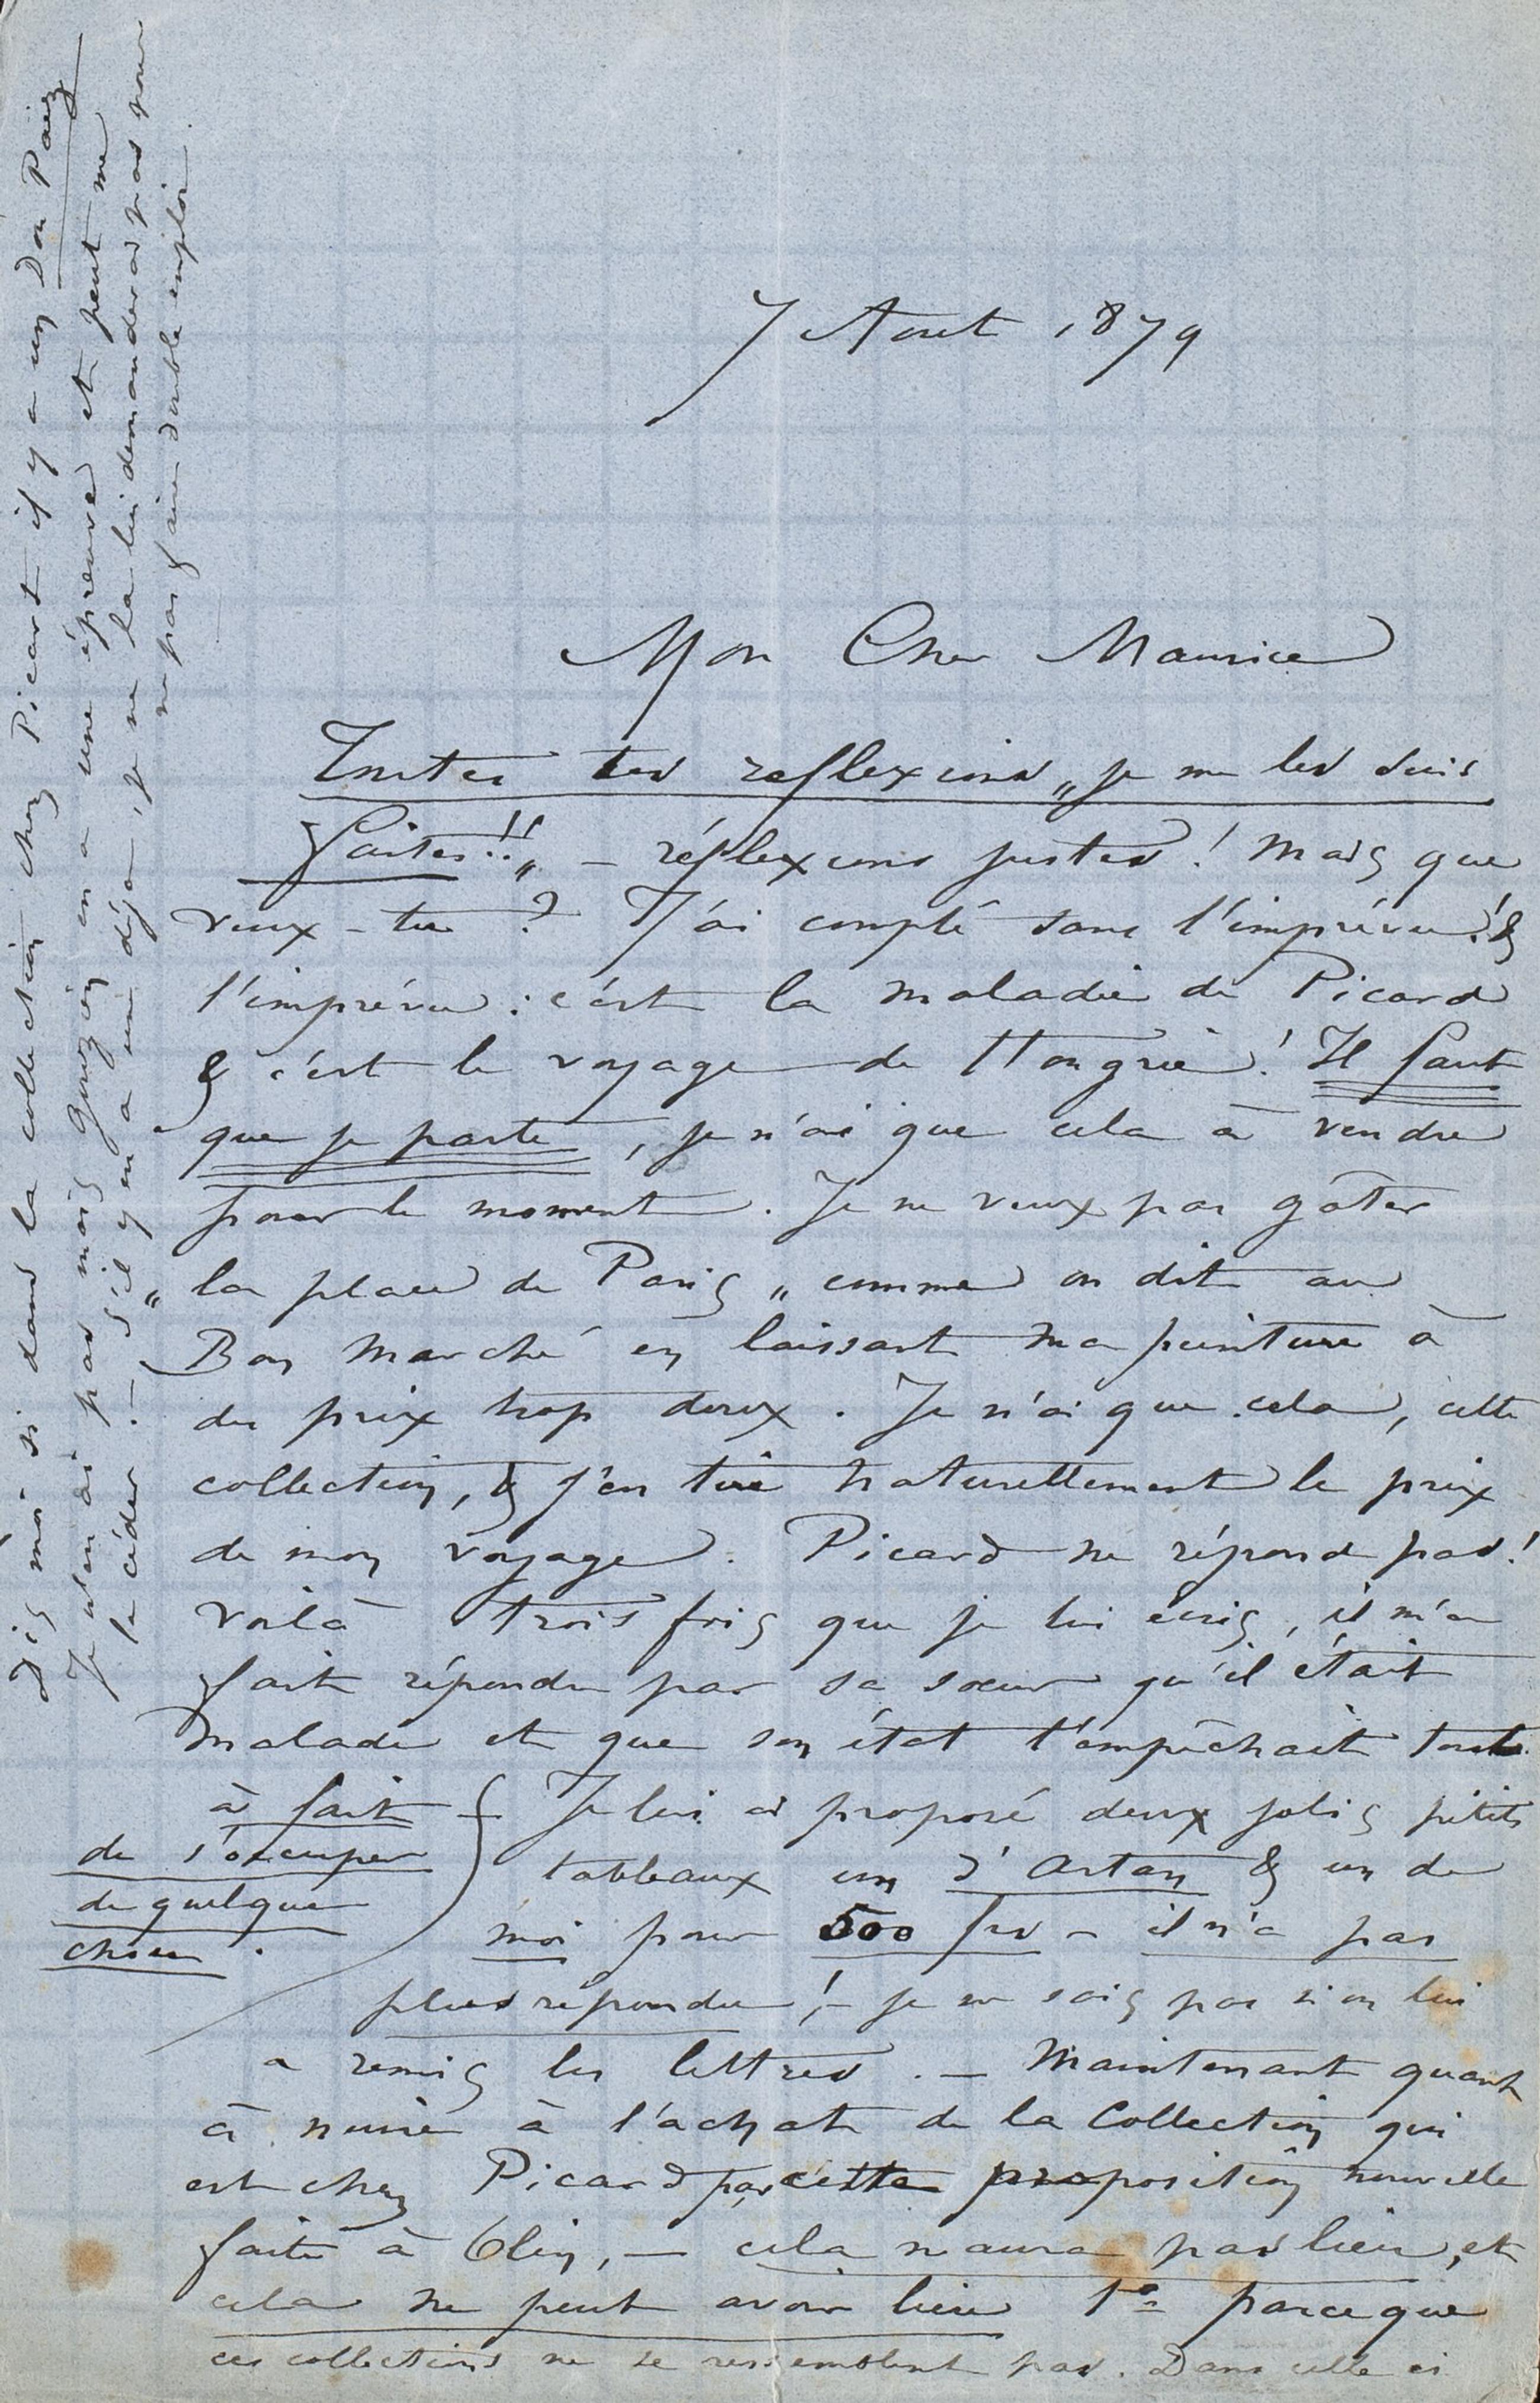 7 Aout 1879
Mon Cher Maurice
Toutes tes reflexions „je me les suis
faites!!„ – réflexions justes ! Mais que
veux-tu ? J'ai compté sans l'imprévu ! &
l'imprévu : c'est la maladie de Picard
& c'est le voyage de Hongrie ! Il faut
que je parte, je n'ai que cela à vendre
pour le moment. Je ne veux pas gâter
„la place de Paris„ comme on dit au
Bon Marché en laissant ma peinture à
des prix trop doux. Je n'ai que cela, cette
collection, & j'en tire naturellement le prix
de mon voyage. Picard ne répond pas !
voilà trois fois que je lui écris, il m'a
fait répondre par sa sœur qu'il était
malade et que son état l'empêchait tout
à fait
de s'occuper
de quelque
chose.
– Je lui ai proposé deux jolis petits
tableaux un d'Artan & un de
moi pour 500 frs – il n'a pas
plus répondu !– je ne sais pas si on lui
a remis les lettres. – Maintenant quant
à nuire à l'achat de la Collection qui
est chez Picard par cette proposition nouvelle
faite à Olin, – cela n'aura pas lieu, et
cela ne peut avoir lieu 1º parceque
ces collections ne se ressemblent pas. Dans celle ci
Dis moi si dans la collection chez Picart il y a un Don Paëz
Je n'en ai pas mais Gouzien en a une épreuve et peut me
la céder. – S'il y en a un déjà, je ne la lui demanderai pas pour
ne pas faire double emploi.